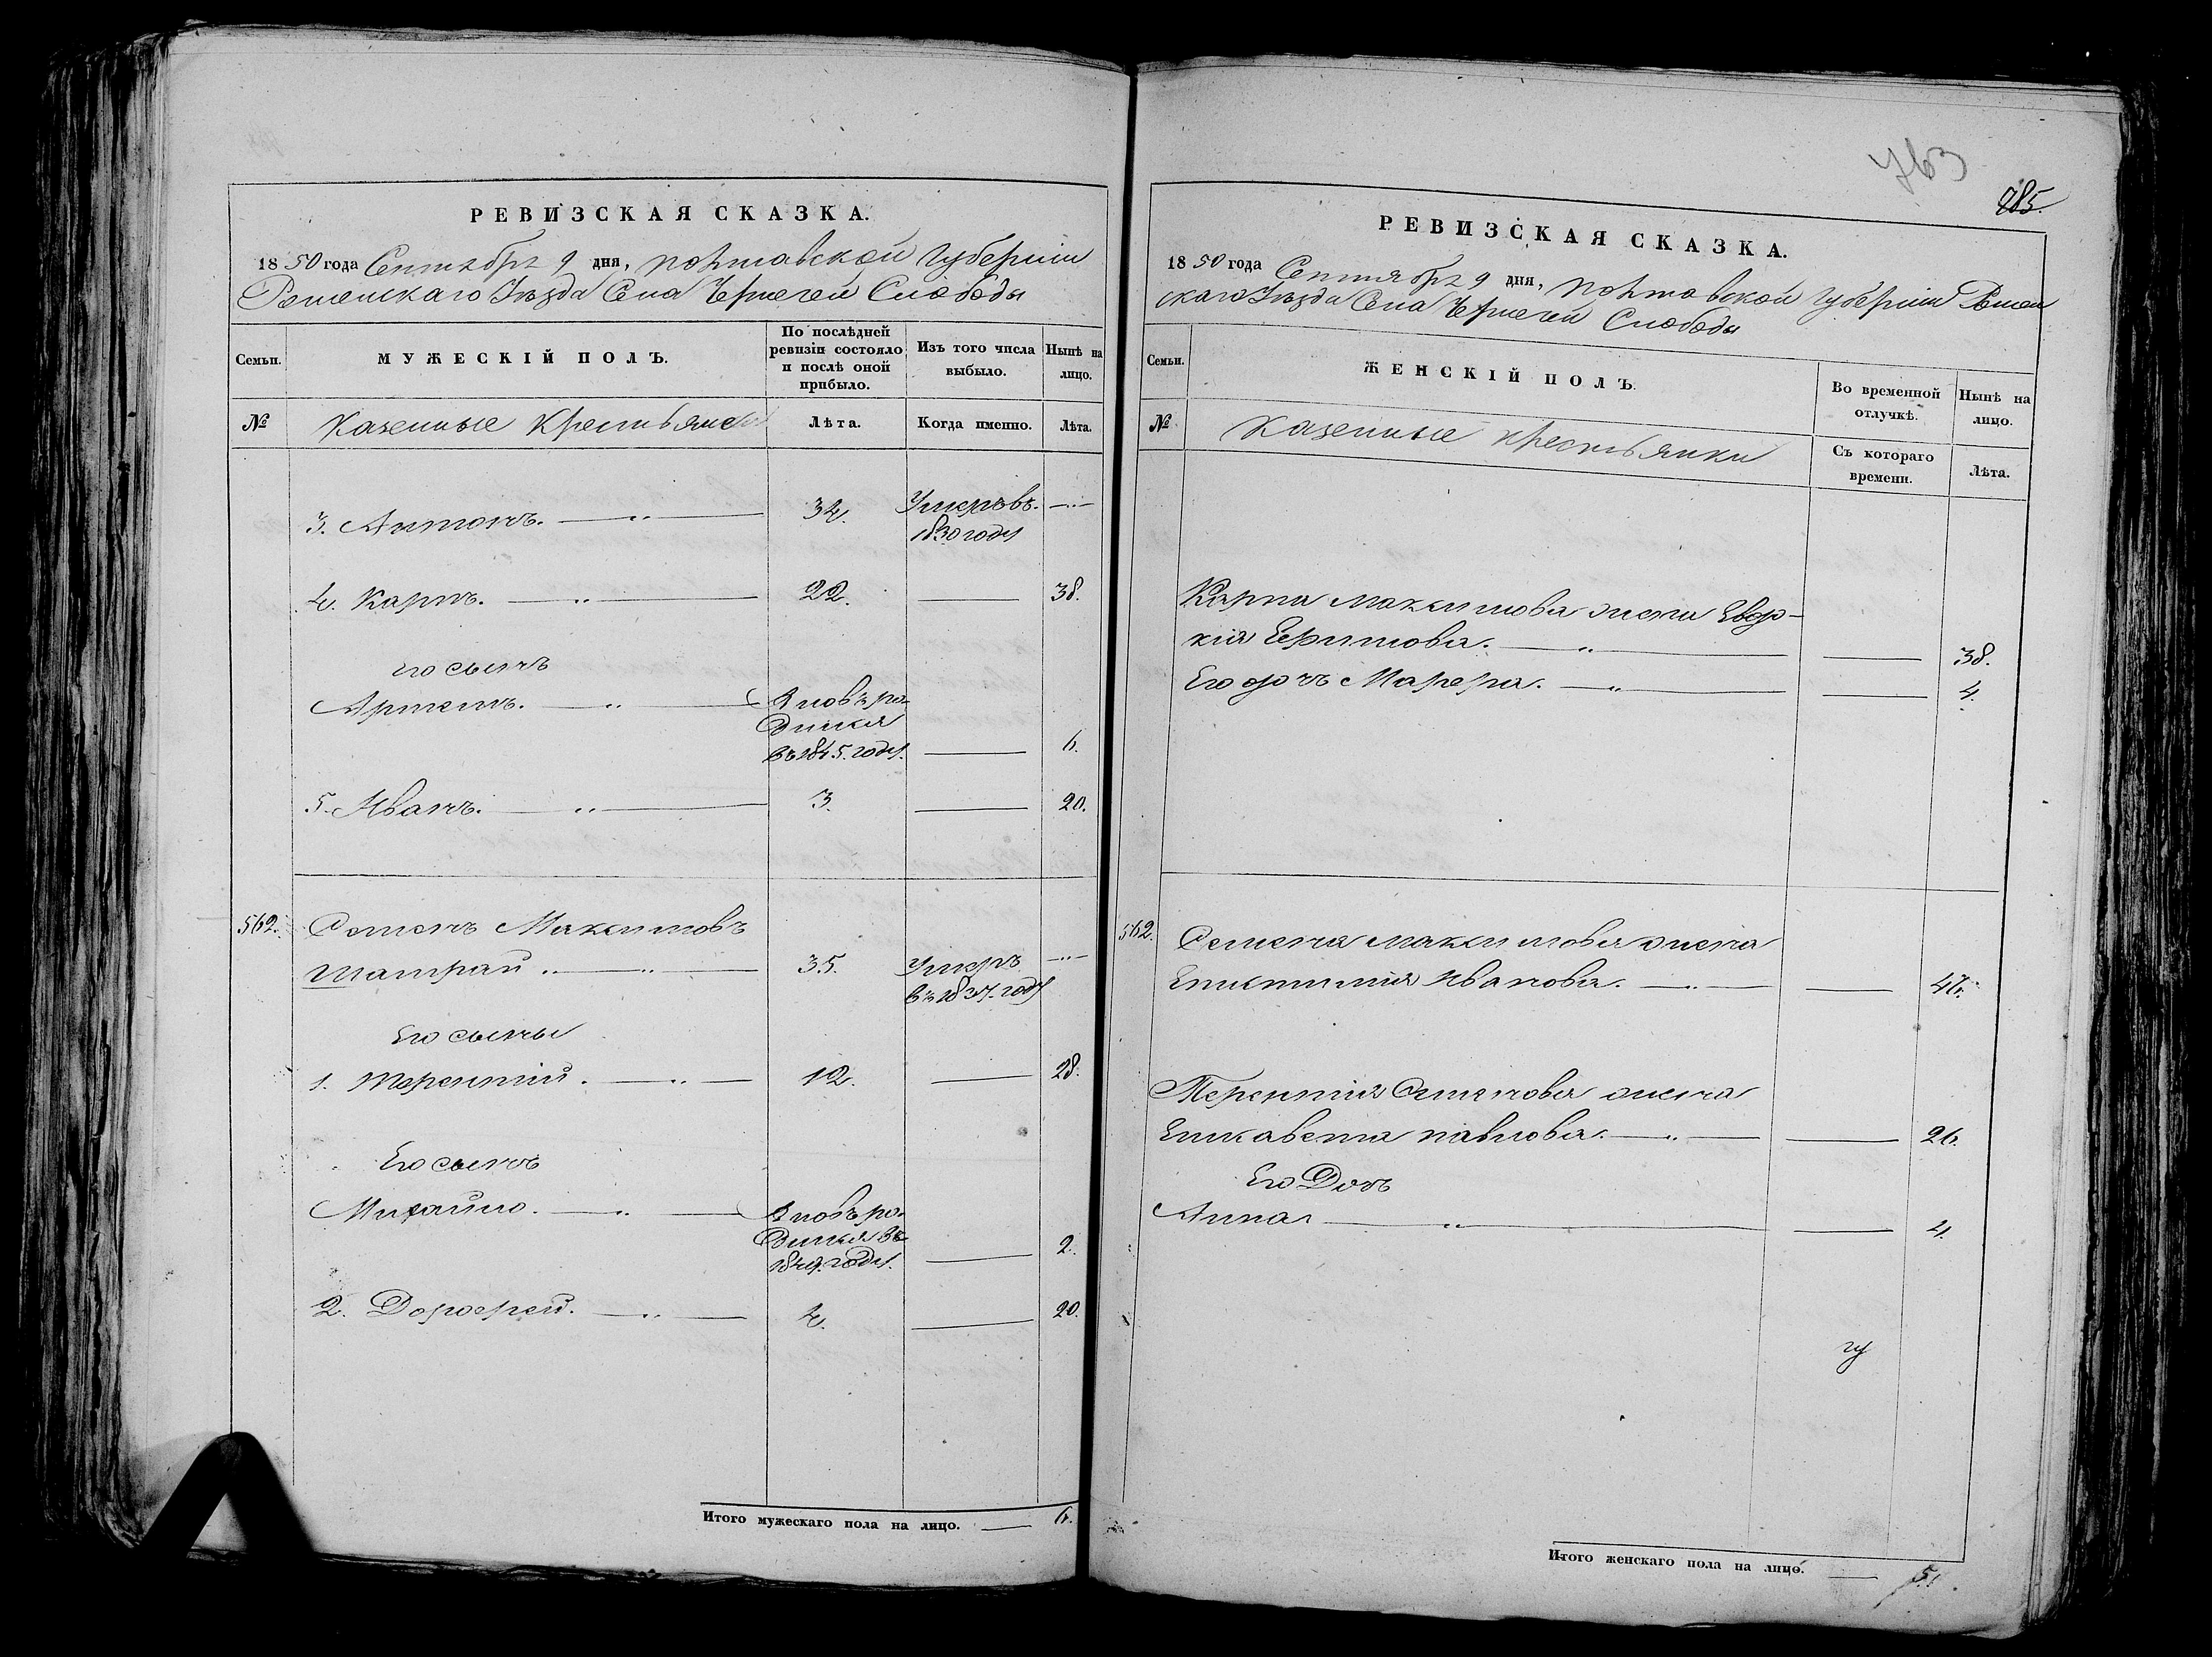 РЕВИЗСКАЯ СКАЗКА.
1850 года Сентября 9 дня, Полтавской Губерніи
Роменскаго Уѣзда Села Чернечей Слободы
Семьи.
МУЖЕСКІЙ ПОЛЪ.
По послѣдней ревизіи состояло и послѣ оной прибыло.
Изъ того числа выбыло.
Нынѣ на лицо.
№
Казенные Крестьяне
Лѣта.
Когда именно.
Лѣта.
3. Антонъ. 32. Умеръ въ
1830 году
4. Карпъ. 22. 38.
его сынъ
Артемъ. Вновь ро-
дился
въ 1845. году. 6.
5. Иванъ. 3. 20.
562. Семенъ Максимовъ
Шатрай 35. Умеръ
въ 1837. году
Его сыны
1. Терентій. 12. 28.
Его сынъ
Михайло. Вновь ро-
дился въ
1849. году. 2.
2. Дорофей. 4. 20.
Итого мужескаго пола на лицо. 6.
763
785.
РЕВИЗСКАЯ СКАЗКА.
1850 года Сентября 9 дня, Полтавской Губерніи Ромен
скаго Уѣзда Села Чернечей Слободы
Семьи.
ЖЕНСКІЙ ПОЛЪ.
Во временной отлучкѣ.
Нынѣ на лицо.
№
Казенные крестьянки
Съ котораго времени.
Лѣта.
Карпа Максимова жена Евдо-
кія Ефимова. 38.
Его дочь Марфа. 4.
562. Семена Максимова жена
Епистимія Иванова. 46.
Терентія Семенова жена
Елисавета Павлова. 26.
Его Дочь
Анна 4.
Итого женскаго пола на лицо. 5.